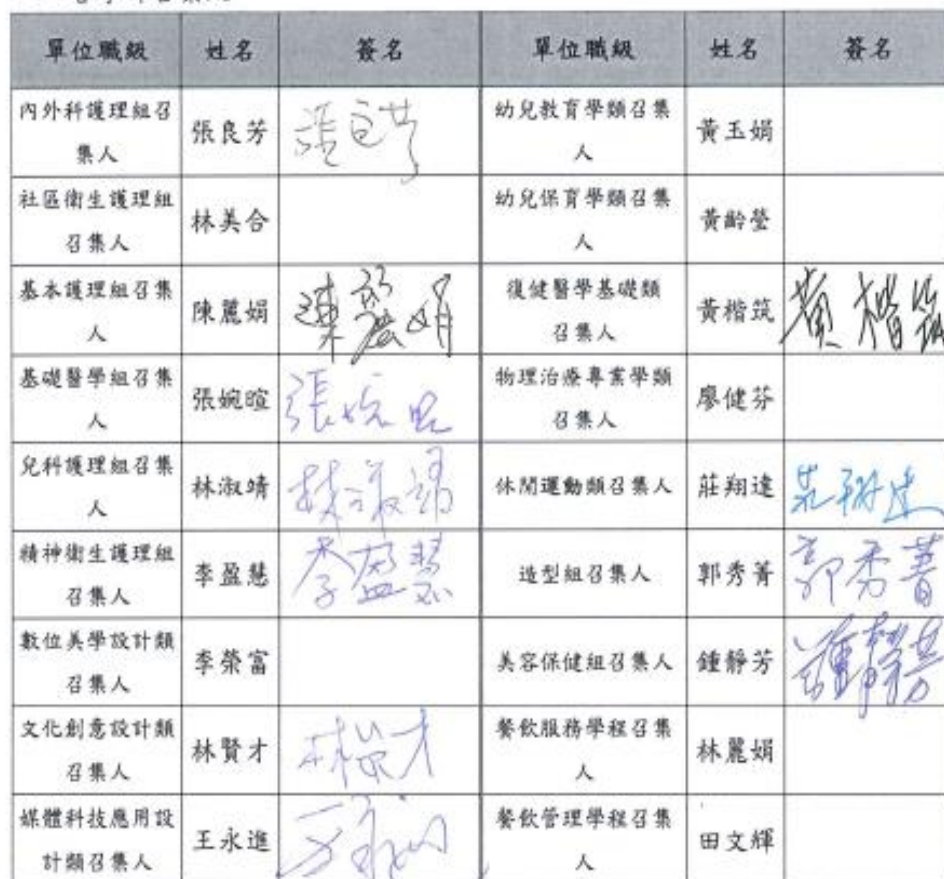 單位職級 姓名 簽名 單位職級 姓名 簽名
內外科護理組召集人 張良芳 張良芳 幼兒教育學類召集人 黃玉娟
社區衛生護理組召集人 林美合 幼兒保育學類召集人 黃齡瑩
基本護理組召集人 陳麗娟 陳麗娟 復健醫學基礎類召集人 黃楷筑 黃楷筑
基礎醫學組召集人 張婉暄 張婉暄 物理治療專業學類召集人 廖健芬
兒科護理組召集人 林淑靖 林淑靖 休閒運動類召集人 莊翔達 莊翔達
精神衛生護理組召集人 李盈慧 李盈慧 造型組召集人 郭秀菁 郭秀菁
數位美學設計類召集人 李榮富 美容保健組召集人 鍾靜芳 鍾靜芳
文化創意設計類召集人 林賢才 林賢才 餐飲服務學程召集人 林麗娟
媒體科技應用設計類召集人 王永進 王永進 餐飲管理學程召集人 田文輝